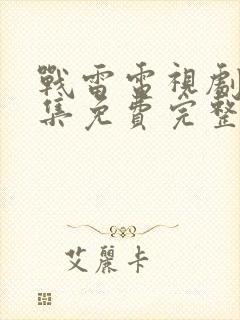 戰雷雷視劇
集免費完整
艾麗卡